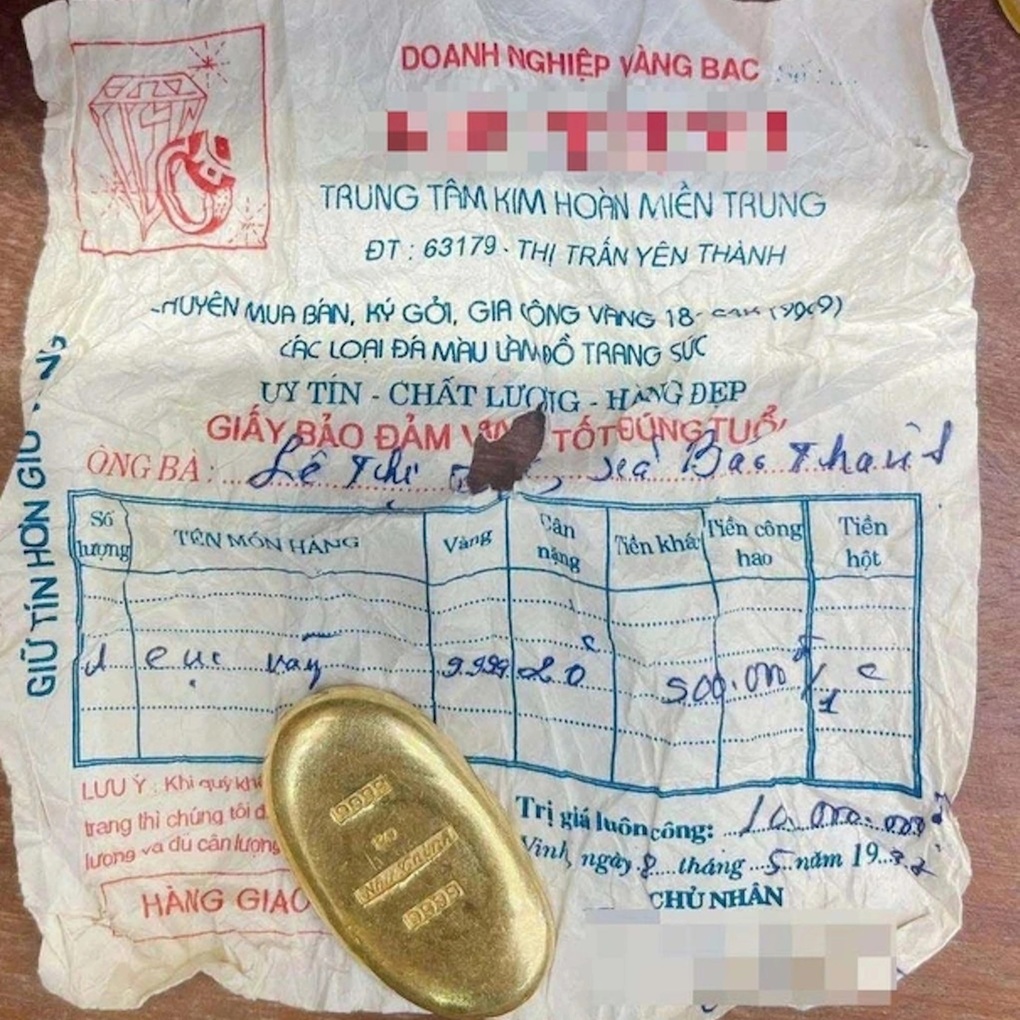 DOANH NGHIỆP VÀNG BẠC
TRUNG TÂM KIM HOÀN MIỀN TRUNG
ĐT : 63179 - THỊ TRẤN YÊN THÀNH
HUYÊN MUA BÁN, KÝ GỞI, GIA CÔNG VÀNG 18-
CÁC LOẠI ĐÁ MÀU LÀM ĐỒ TRANG SỨC
UY TÍN - CHẤT LƯỢNG - HÀNG ĐẸP
GIẤY BẢO ĐẢM TỐT ĐÚNG TUỔI
ÔNG BÀ : Lê Thị
GIỮ TÍN HƠN GIỮ
Số lượng TÊN MÓN HÀNG Vàng Cân nặng Tiền khá Tiền công hao Tiền hột
1 cục 9.999 20 c 500.000 đ/1 c
9999
20
9999
LƯU Ý : Khi quý khá
trang thì chúng tôi đ
lượng và đủ cân lượng
HÀNG GIAO
Trị giá luôn công: 10.000.000 đ
Vinh, ngày 8 tháng 5 năm 19
CHỦ NHÂN